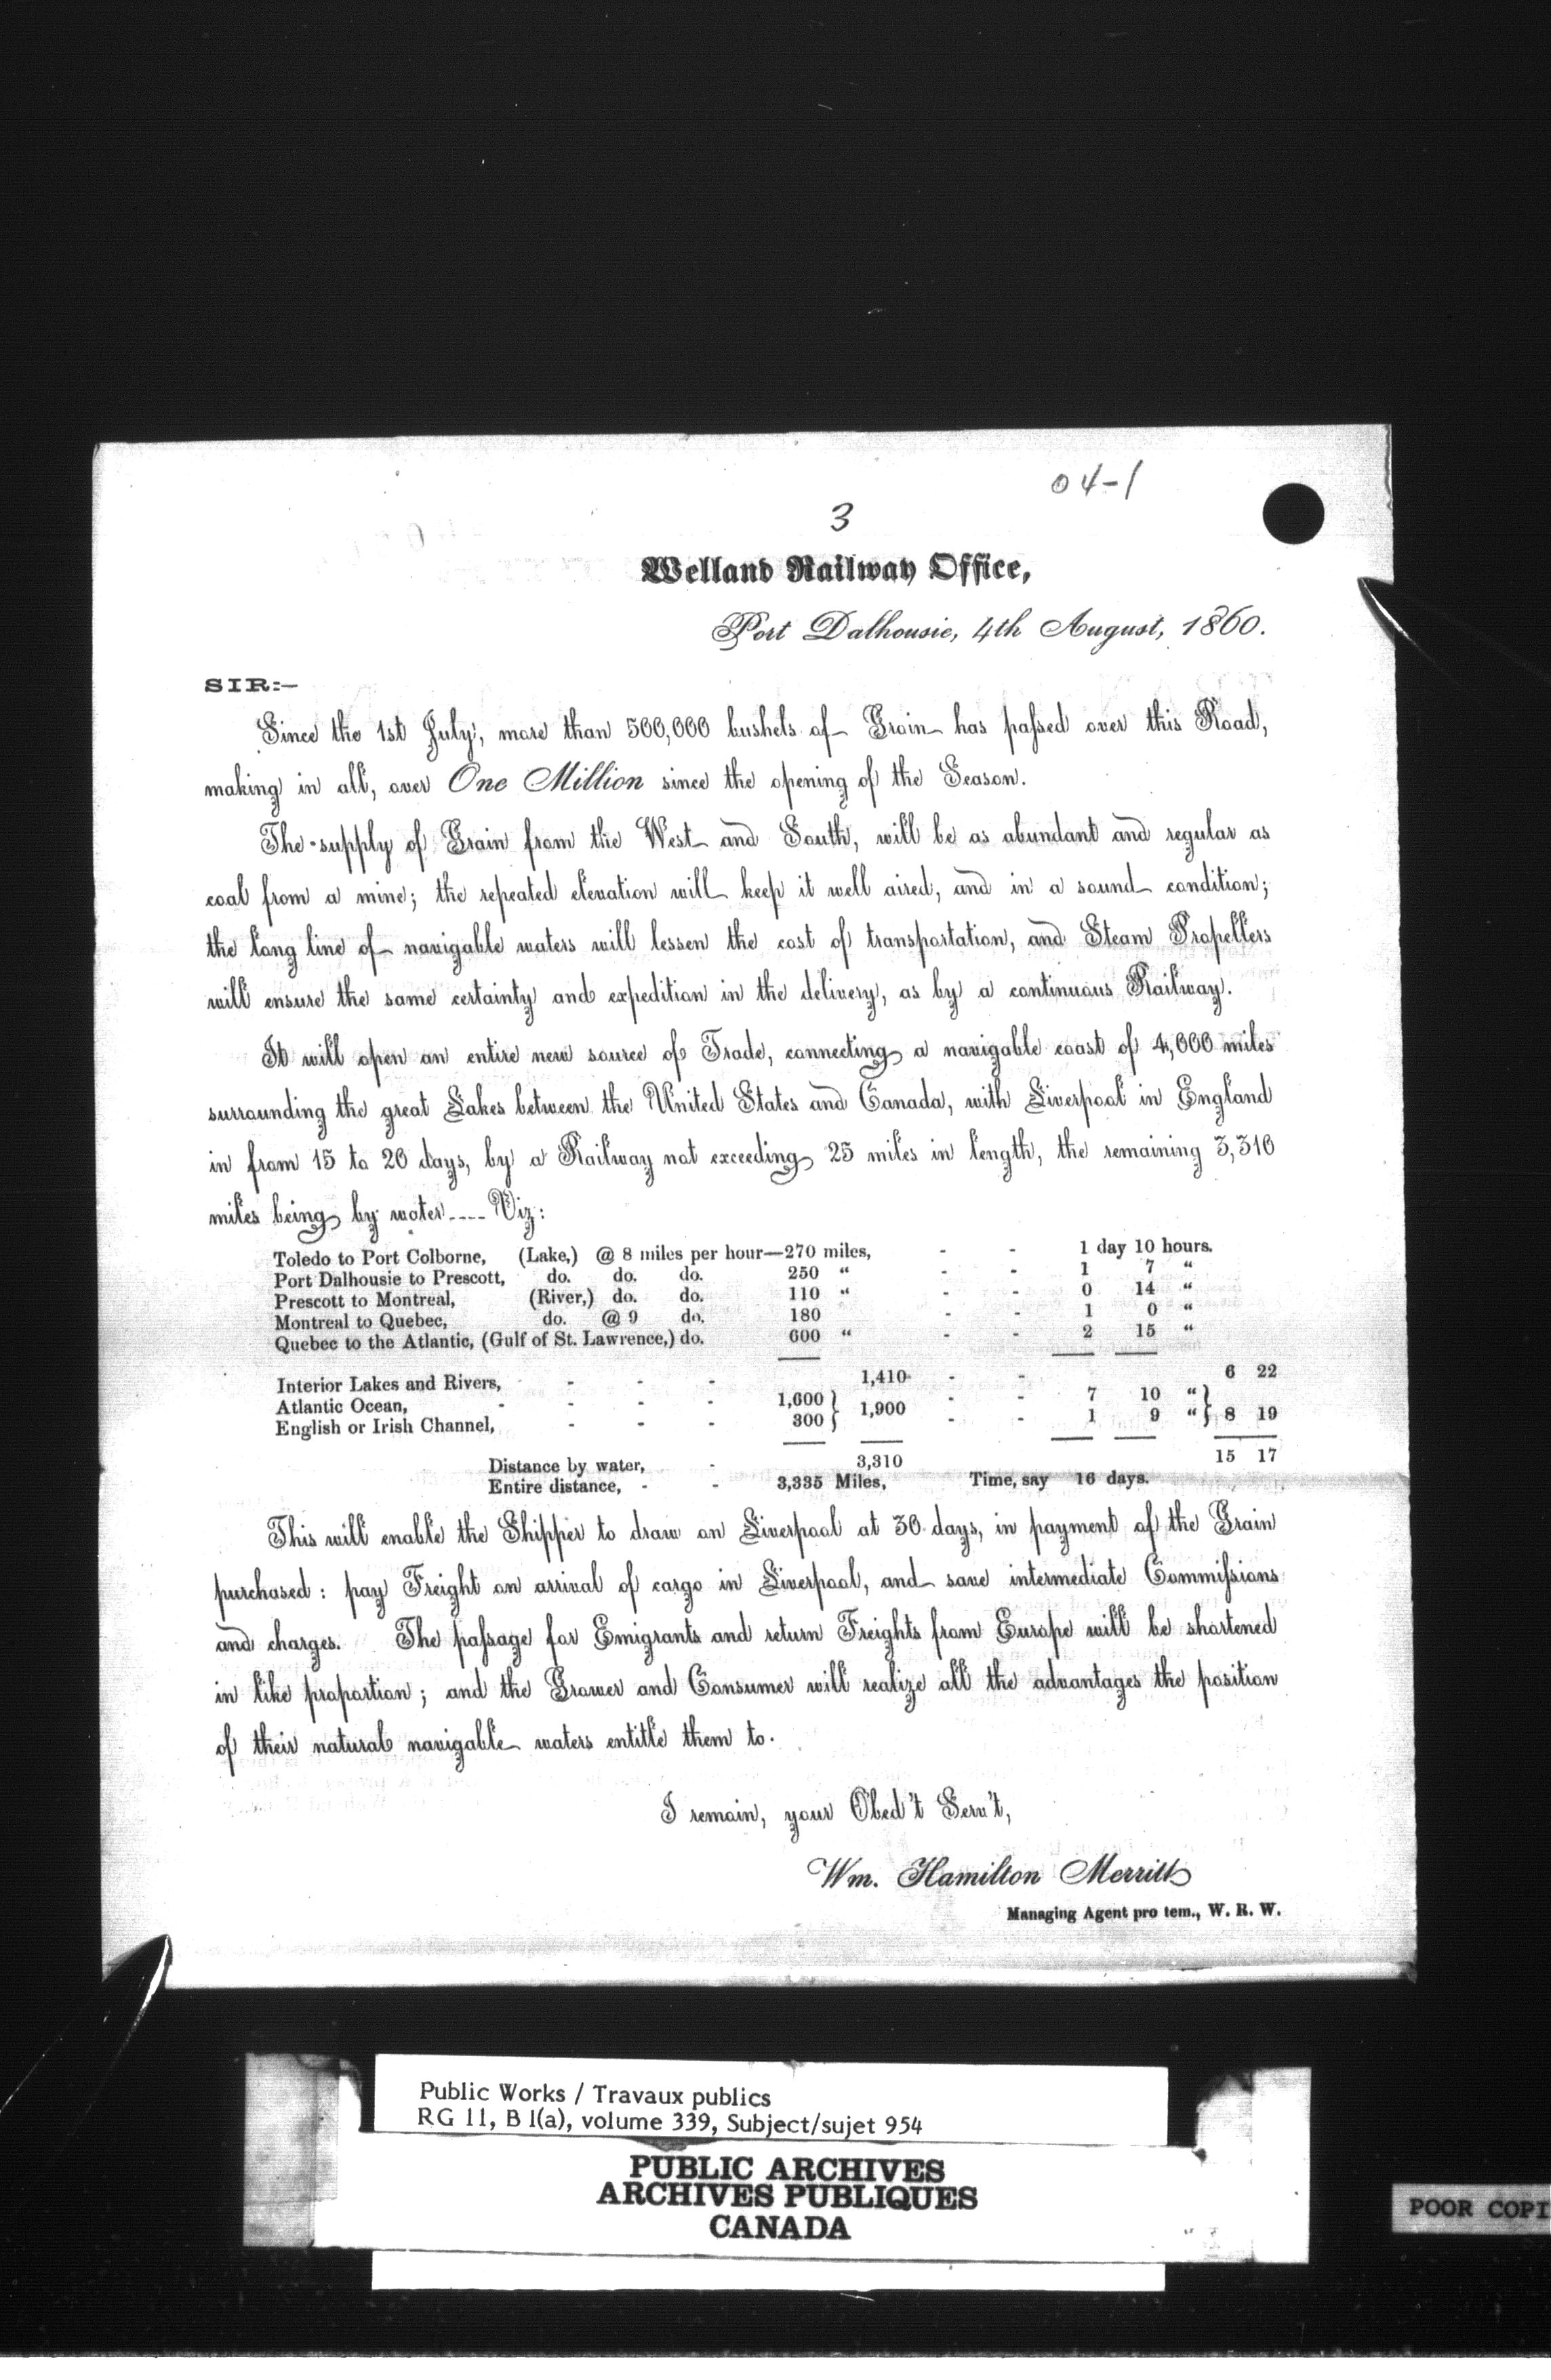 04-1
3
Welland Railway Office,
Port Dalhousie, 4th August, 1860.
SIR:—
Since the 1st July, more than 500,000 bushels of Grain has passed over this Road,
making in all, over One Million since the opening of the Season.
The supply of Grain from the West and South, will be as abundant and regular as
coal from a mine; the repeated elevation will keep it well aired, and in a sound condition;
the long line of navigable waters will lessen the cost of transportation, and Steam Propellers
will ensure the same certainty and expedition in the delivery, as by a continuous Railway.
It will open an entire new source of Trade, connecting a navigable coast of 4,000 miles
surrounding the great Lakes between the United States and Canada, with Liverpool in England
in from 15 to 20 days, by a Railway not exceeding 25 miles in length, the remaining 3,310
miles being by water---- Viz:
Toledo to Port Colborne, (Lake,) @ 8 miles per hour—270 miles, - - 1 day 10 hours.
Port Dalhousie to Prescott, do. do. do. 250 “ - - 1 7 “
Prescott to Montreal, (River,) do. do. 110 “ - - 0 14 “
Montreal to Quebec, do. @ 9 do. 180 - - 1 0 “
Quebec to the Atlantic, (Gulf of St. Lawrence,) do. 600 “ - - 2 15 “
Interior Lakes and Rivers, - - - 1,410 - - 6 22
Atlantic Ocean, - - - - 1,600 } 1,900 - - 7 10 “ }
English or Irish Channel, - - - 300 } - - 1 9 “ } 8 19
15 17
Distance by water, - 3,310
Entire distance, - - 3,335 Miles, Time, say 16 days.
This will enable the Shipper to draw on Liverpool at 30 days, in payment of the Grain
purchased: pay Freight on arrival of cargo in Liverpool, and save intermediate Commissions
and charges. The passage for Emigrants and return Freights from Europe will be shortened
in like proportion; and the Grower and Consumer will realize all the advantages the position
of their natural navigable waters entitle them to.
I remain, your Obed't Serv't,
Wm. Hamilton Merritt
Managing Agent pro tem., W. R. W.
Public Works / Travaux publics
RG 11, B 1(a), volume 339, Subject/sujet 954
PUBLIC ARCHIVES
ARCHIVES PUBLIQUES
CANADA
POOR COPI